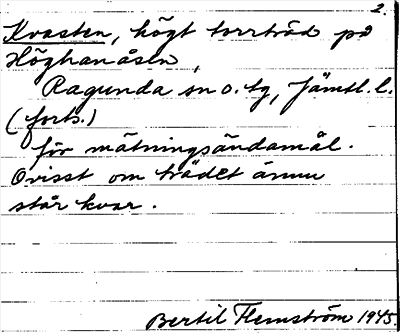 2.
Kvasten, högt torrträd på
Höghanåsen,
Ragunda sn o. tg, Jämtl. l.
(forts.)
för mätningsändamål.
Ovisst om trädet ännu
står kvar.
Bertil Flemström 1945.